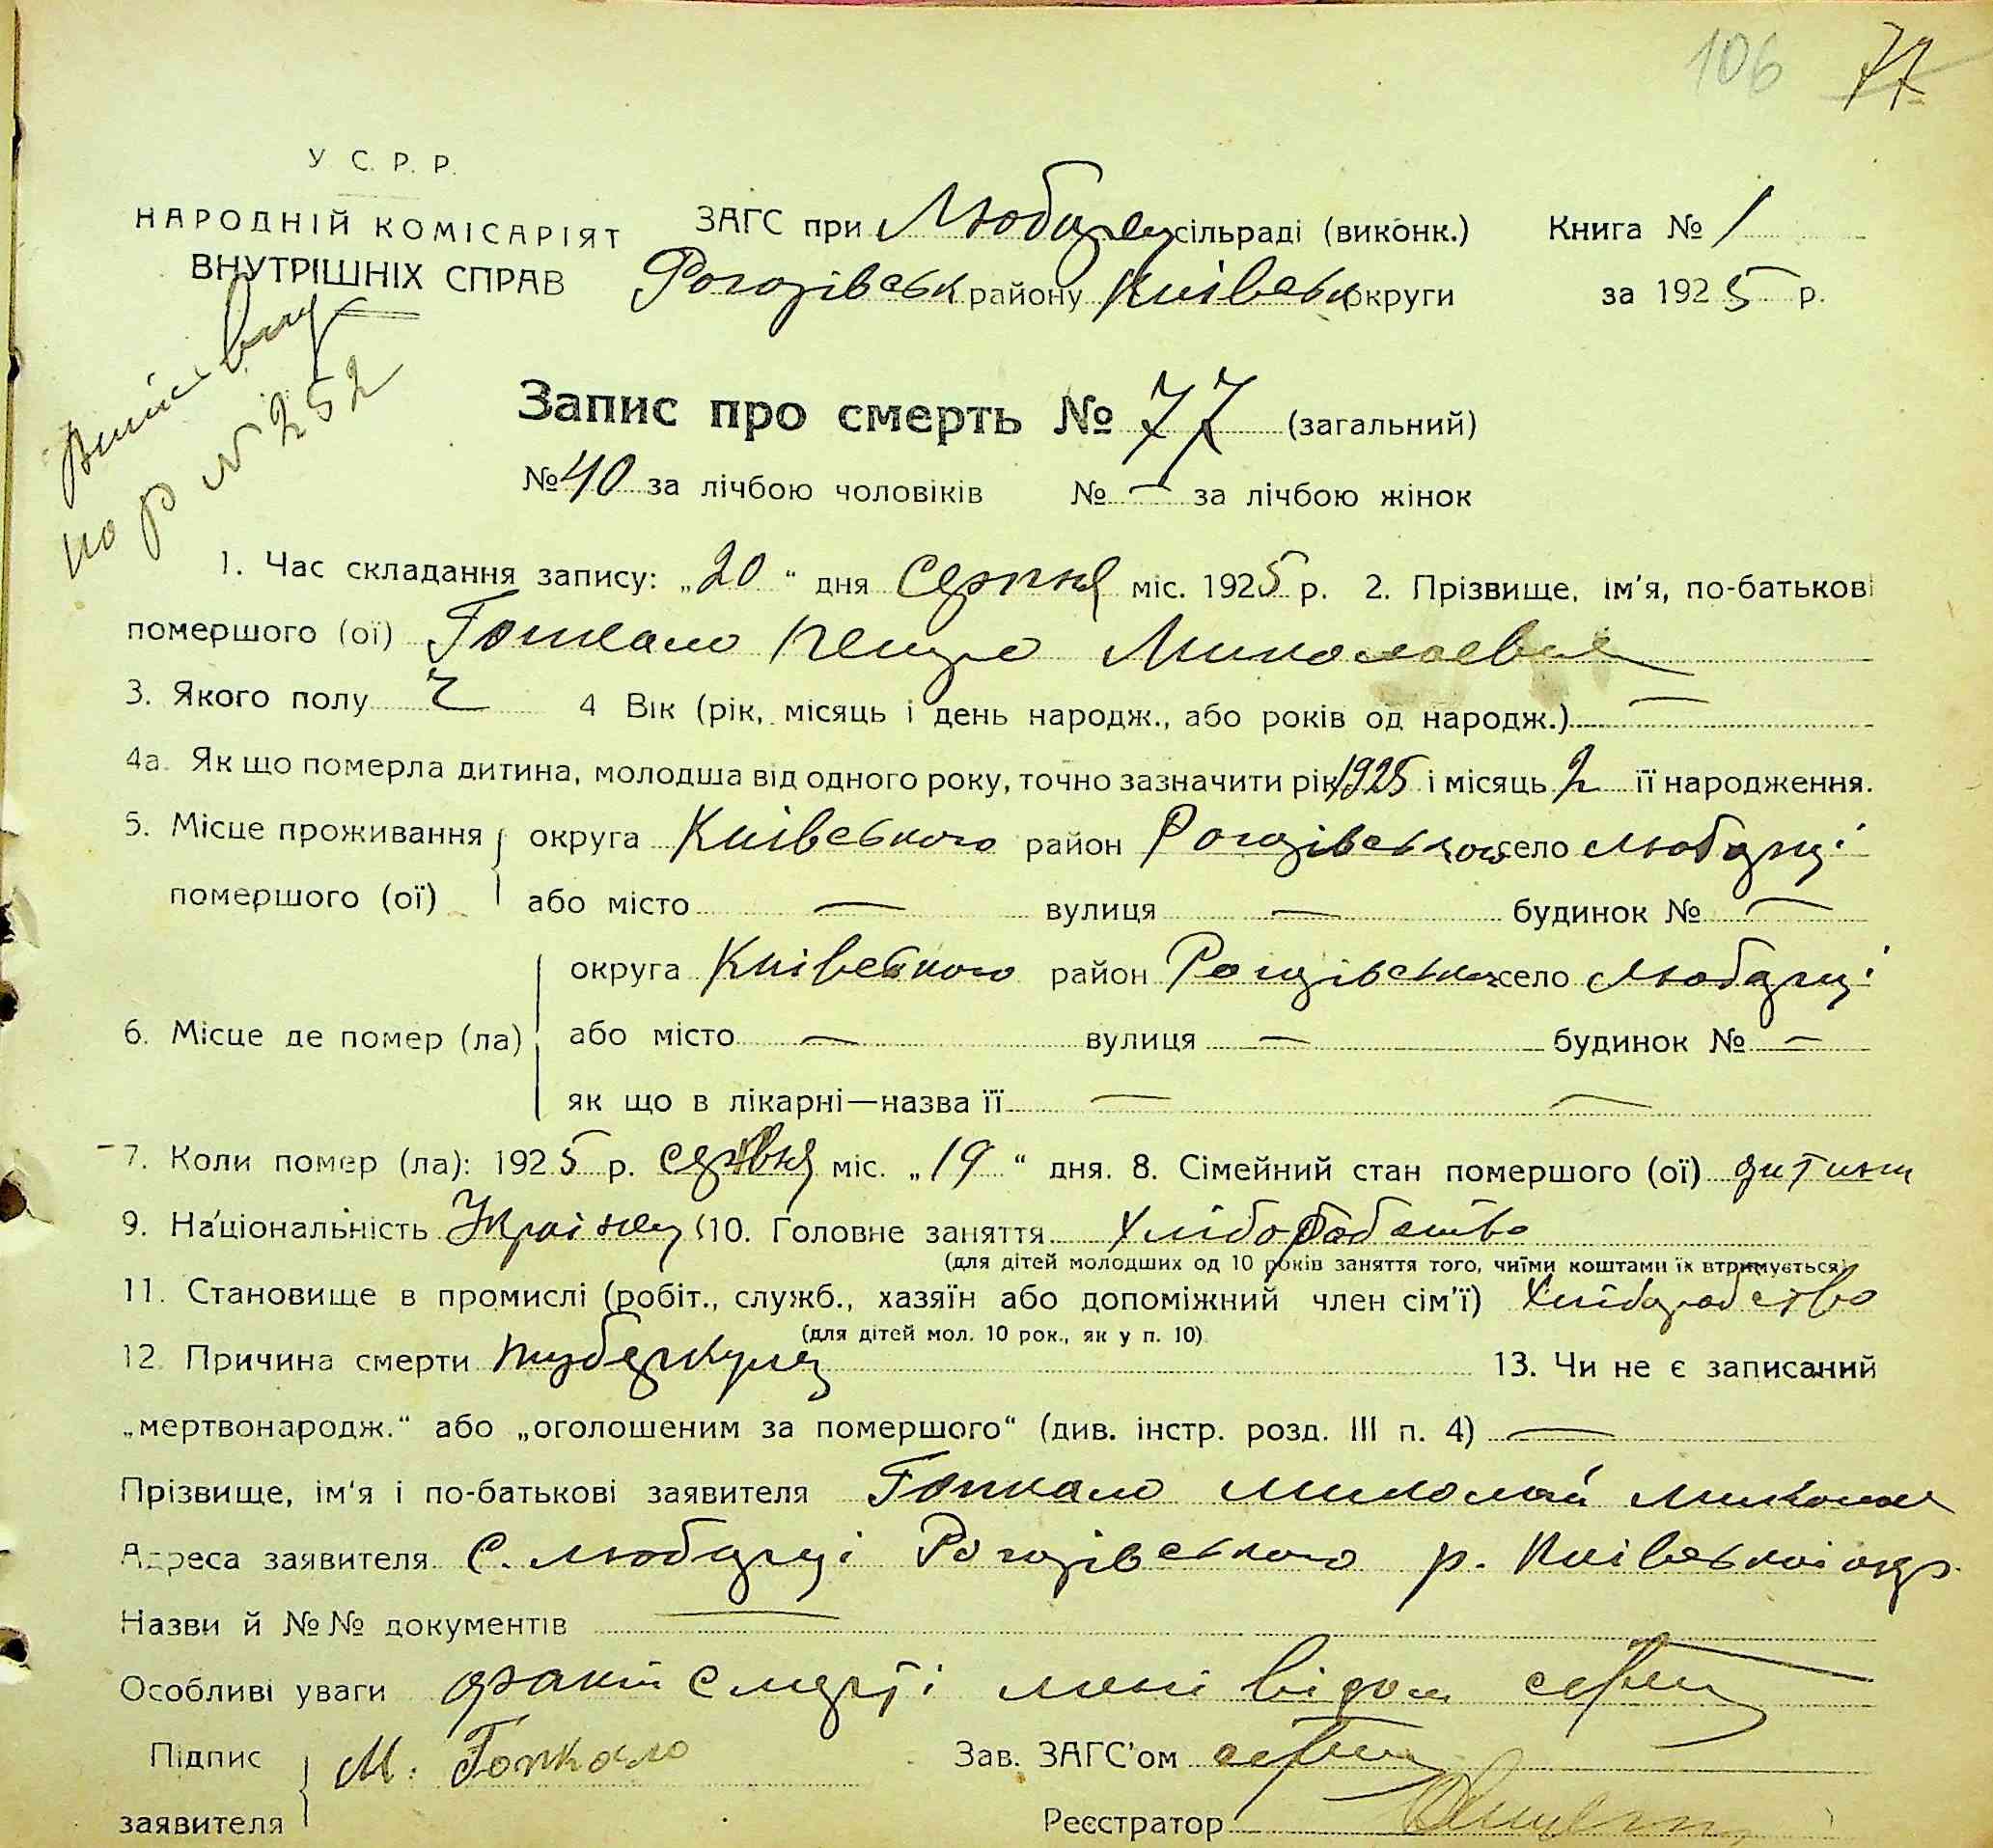 106 77
У С. Р. Р.
НАРОДНІЙ КОМІСАРІЯТ
ВНУТРІШНІХ СПРАВ
ЗАГС при сільраді (виконк.) Книга № 1
Рогозівськ району Київськ округи за 1925 р.
по р № 252
Запис про смерть № 77 (загальний)
№ 40 за лічбою чоловіків № — за лічбою жінок
1. Час складання запису: „20“ дня Серпня міс. 1925 р. 2. Прізвище, ім'я, по-батькові
помершого (ої) Гопкало Петро Миколаевич
3. Якого полу ч 4 Вік (рік, місяць і день народж., або років од народж.) —
4а. Як що померла дитина, молодша від одного року, точно зазначити рік 1925 і місяць 2 її народження.
5. Місце проживання округа Київського район Рогозівського село Любарці
помершого (ої) або місто — вулиця — будинок № —
округа Київського район Рогозівського село Любарці
6. Місце де помер (ла) або місто — вулиця — будинок № —
як що в лікарні—назва її — —
7. Коли помер (ла): 1925 р. серпня міс. „19“ дня. 8. Сімейний стан помершого (ої) дитина
9. Національність 10. Головне заняття Хліборобство
(для дітей молодших од 10 років заняття того, чиїми коштами їх втримується)
11. Становище в промислі (робіт., служб., хазяїн або допоміжний член сім'ї) Хліборобство
(для дітей мол. 10 рок., як у п. 10)
12. Причина смерти туберкульоз 13. Чи не є записаний
„мертвонародж.“ або „оголошеним за помершого“ (див. інстр. розд. III п. 4) —
Прізвище, ім'я і по-батькові заявителя Гопкало Миколай
Адреса заявителя С. Любарці Рогозівського р. Київської окр.
Назви й №№ документів —
Особливі уваги факт смерті мені відом
Підпис
заявителя М. Гопкало
Зав. ЗАГС'ом
Реєстратор